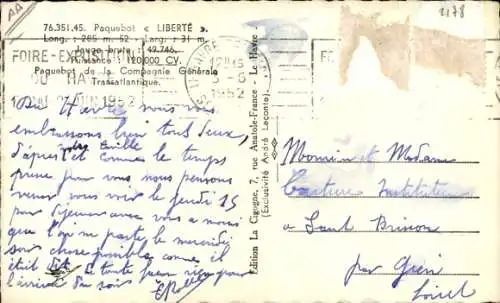 AA
2178
76.351.45. Paquebot « LIBERTÉ ».
Long. : 285 m. 52 - Larg. : 31 m.
Jauge brute : 49.746.
Puissance : 120.000 CV.
Paquebot de la Compagnie Générale
Transatlantique.
FOIRE-EXPOSITION
DU HAVRE
JUIN 1952
1952
Edition La Cigogne, 7, rue Anatole-France - Le Havre
(Exclusivité André Leconte)
Du Havre nous vous
embrassons bien tous deux,
d'après votre famille et comme le temps
presse pour vous nous pensons
venir vous voir le jeudi 15
pour déjeuner avec vous a moins
que l'on ne parte le mercredi
soir chose possible comme il
était dit
l'arrivée du soir
Monsieur et Madame
Instituteur
a Saint Brisson
par Gien
Loiret